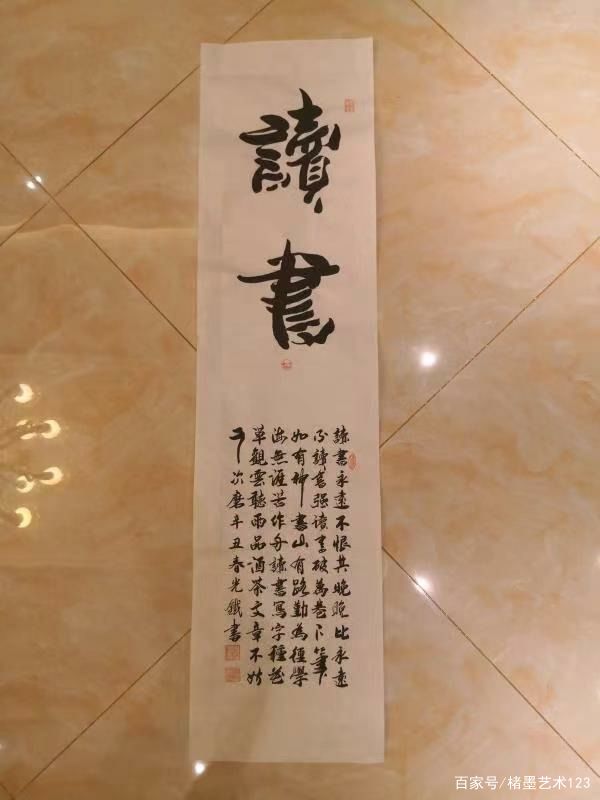 讀書
讀書永遠不恨其晚晚比永遠
不讀書强读書破萬卷下筆
如有神書山有路勤為徑學
海無涯苦作舟讀書寫字種花
草觀雲聽雨品酒茶文章不妨
千次磨辛丑春光鐵書
百家号/楮墨艺术123